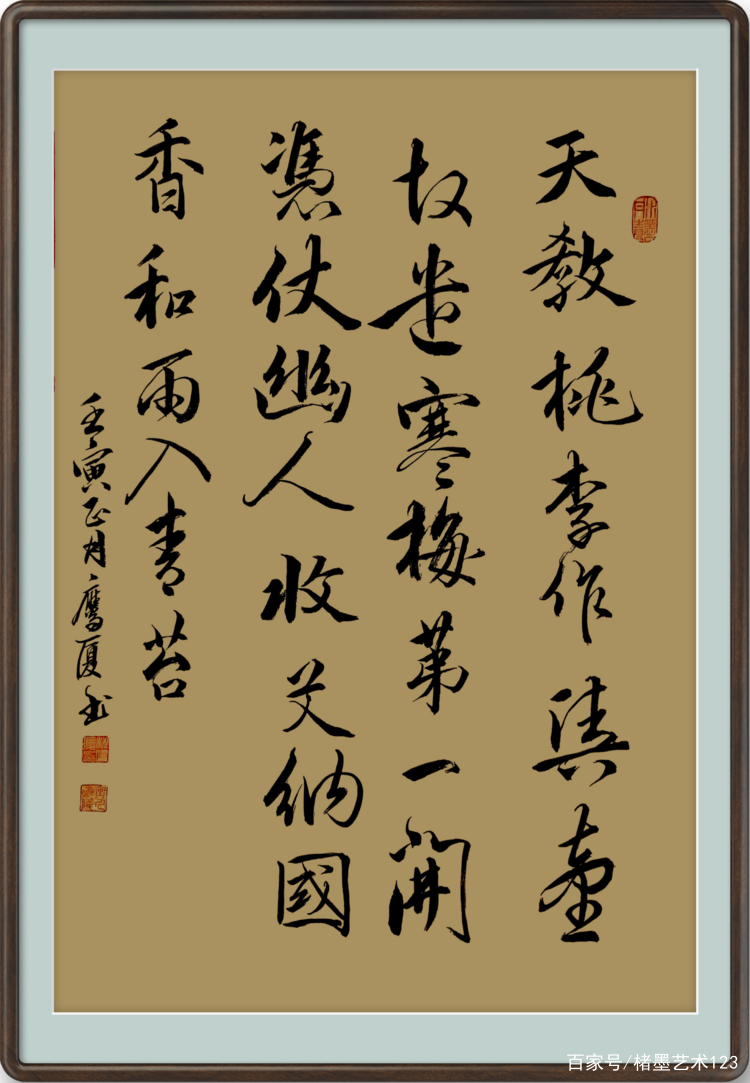 天敎桃李作輿臺
故遣寒梅第一開
慿仗幽人收艾納國
香和雨入青苔
壬寅正月鷹厦书
百家号/楮墨艺术123